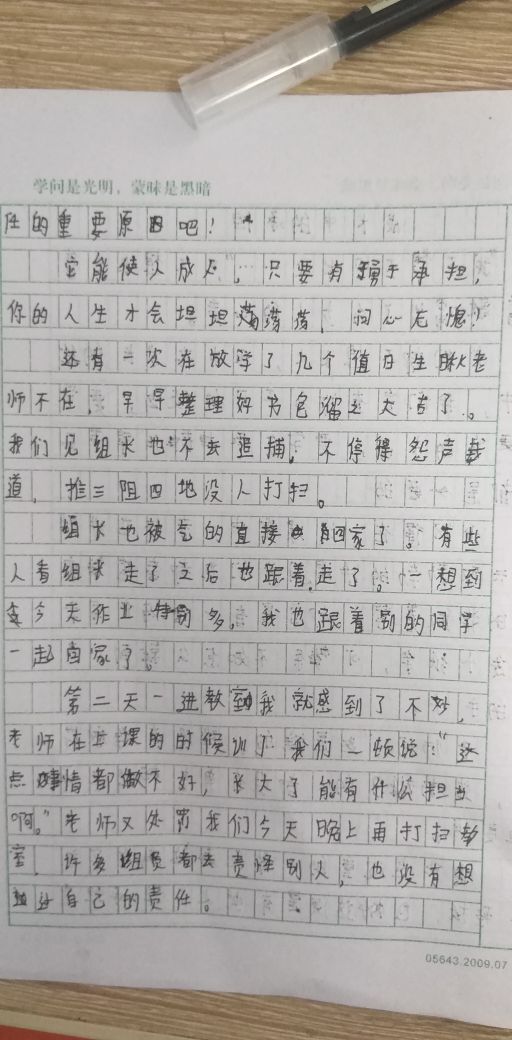 学问是光明，蒙昧是黑暗
任的重要原因吧！
它能使人成人，只要有勇于承担，
你的人生才会坦坦荡荡荡，问心无愧！
还有一次在放学了几个值日生瞅老
师不在，早早整理好书包溜之大吉了。
我们见组长也不去追捕，不停得怨声载
道，推三阻四地没人打扫。
组长也被气的直接回家了。有些
人看组长走了之后也跟着走了。一想到
今天作业特别多，我也跟着别的同学
一起回家了。
第二天一进教室我就感到了不妙，
老师在上课的时候训了我们一顿说："这
点事情都做不好，长大了能有什么担当
啊。"老师又处罚我们今天晚上再打扫教
室，许多组员都去责怪别人，也没有想
过自己的责任。
05643.2009.07